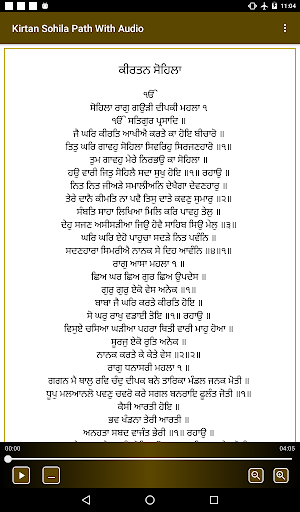 11:04
Kirtan Sohila Path With Audio
ਕੀਰਤਨ ਸੋਹਿਲਾ
ੴ
ਸੋਹਿਲਾ ਰਾਗੁ ਗਉੜੀ ਦੀਪਕੀ ਮਹਲਾ ੧
ੴ ਸਤਿਗੁਰ ਪ੍ਰਸਾਦਿ ॥
ਜੈ ਘਰਿ ਕੀਰਤਿ ਆਖੀਐ ਕਰਤੇ ਕਾ ਹੋਇ ਬੀਚਾਰੋ ॥
ਤਿਤੁ ਘਰਿ ਗਾਵਹੁ ਸੋਹਿਲਾ ਸਿਵਰਿਹੁ ਸਿਰਜਣਹਾਰੋ ॥੧॥
ਤੁਮ ਗਾਵਹੁ ਮੇਰੇ ਨਿਰਭਉ ਕਾ ਸੋਹਿਲਾ ॥
ਹਉ ਵਾਰੀ ਜਿਤੁ ਸੋਹਿਲੈ ਸਦਾ ਸੁਖੁ ਹੋਇ ॥੧॥ ਰਹਾਉ ॥
ਨਿਤ ਨਿਤ ਜੀਅੜੇ ਸਮਾਲੀਅਨਿ ਦੇਖੈਗਾ ਦੇਵਣਹਾਰੁ ॥
ਤੇਰੇ ਦਾਨੈ ਕੀਮਤਿ ਨਾ ਪਵੈ ਤਿਸੁ ਦਾਤੇ ਕਵਣੁ ਸੁਮਾਰੁ ॥੨॥
ਸੰਬਤਿ ਸਾਹਾ ਲਿਖਿਆ ਮਿਲਿ ਕਰਿ ਪਾਵਹੁ ਤੇਲੁ ॥
ਦੇਹੁ ਸਜਣ ਅਸੀਸੜੀਆ ਜਿਉ ਹੋਵੈ ਸਾਹਿਬ ਸਿਉ ਮੇਲੁ ॥੩॥
ਘਰਿ ਘਰਿ ਏਹੋ ਪਾਹੁਚਾ ਸਦੜੇ ਨਿਤ ਪਵੰਨਿ ॥
ਸਦਣਹਾਰਾ ਸਿਮਰੀਐ ਨਾਨਕ ਸੇ ਦਿਹ ਆਵੰਨਿ ॥੪॥੧॥
ਰਾਗੁ ਆਸਾ ਮਹਲਾ ੧ ॥
ਛਿਅ ਘਰ ਛਿਅ ਗੁਰ ਛਿਅ ਉਪਦੇਸ ॥
ਗੁਰੁ ਗੁਰੁ ਏਕੋ ਵੇਸ ਅਨੇਕ ॥੧॥
ਬਾਬਾ ਜੈ ਘਰਿ ਕਰਤੇ ਕੀਰਤਿ ਹੋਇ ॥
ਸੋ ਘਰੁ ਰਾਖੁ ਵਡਾਈ ਤੋਇ ॥੧॥ ਰਹਾਉ ॥
ਵਿਸੁਏ ਚਸਿਆ ਘੜੀਆ ਪਹਰਾ ਥਿਤੀ ਵਾਰੀ ਮਾਹੁ ਹੋਆ ॥
ਸੂਰਜੁ ਏਕੋ ਰੁਤਿ ਅਨੇਕ ॥
ਨਾਨਕ ਕਰਤੇ ਕੇ ਕੇਤੇ ਵੇਸ ॥੨॥੨॥
ਰਾਗੁ ਧਨਾਸਰੀ ਮਹਲਾ ੧ ॥
ਗਗਨ ਮੈ ਥਾਲੁ ਰਵਿ ਚੰਦੁ ਦੀਪਕ ਬਨੇ ਤਾਰਿਕਾ ਮੰਡਲ ਜਨਕ ਮੋਤੀ ॥
ਧੂਪੁ ਮਲਆਨਲੋ ਪਵਣੁ ਚਵਰੋ ਕਰੇ ਸਗਲ ਬਨਰਾਇ ਫੂਲੰਤ ਜੋਤੀ ॥੧॥
ਕੈਸੀ ਆਰਤੀ ਹੋਇ ॥
ਭਵ ਖੰਡਨਾ ਤੇਰੀ ਆਰਤੀ ॥
ਅਨਹਤਾ ਸਬਦ ਵਾਜੰਤ ਭੇਰੀ ॥੧॥ ਰਹਾਉ ॥
00:00
04:05